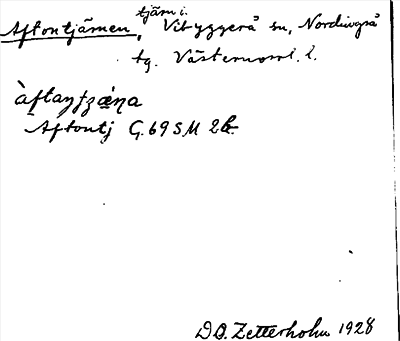 Aftontjärnen, tjärn i. Vibyggerå sn, Nordingrå
tg. Västernorrl. l.
àftantzǽṇa
Aftontj G. 69 SM 2b.
D.O. Zetterholm 1928